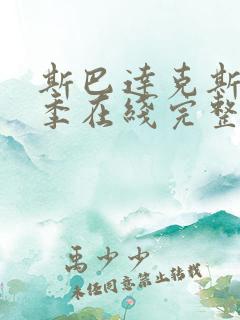 斯巴达克斯
季在线完整
禹少少
未经同意禁止转载